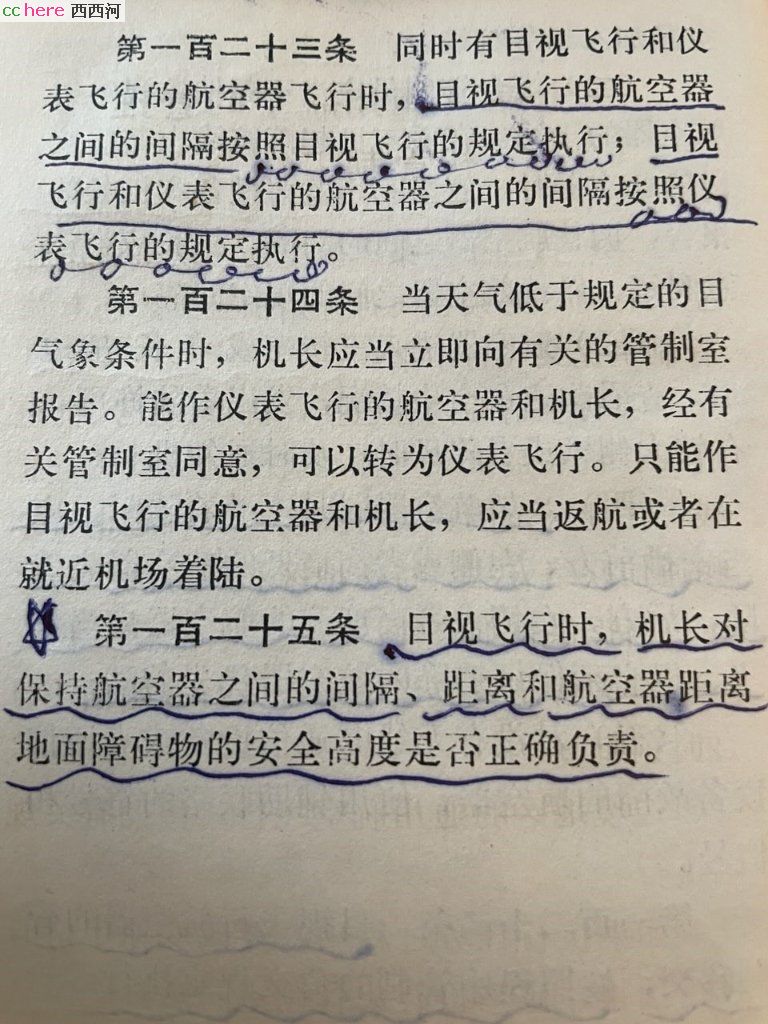 cchere 西西河
第一百二十三条 同时有目视飞行和仪
表飞行的航空器飞行时，目视飞行的航空器
之间的间隔按照目视飞行的规定执行；目视
飞行和仪表飞行的航空器之间的间隔按照仪
表飞行的规定执行。
第一百二十四条 当天气低于规定的目
气象条件时，机长应当立即向有关的管制室
报告。能作仪表飞行的航空器和机长，经有
关管制室同意，可以转为仪表飞行。只能作
目视飞行的航空器和机长，应当返航或者在
就近机场着陆。
第一百二十五条 目视飞行时，机长对
保持航空器之间的间隔、距离和航空器距离
地面障碍物的安全高度是否正确负责。